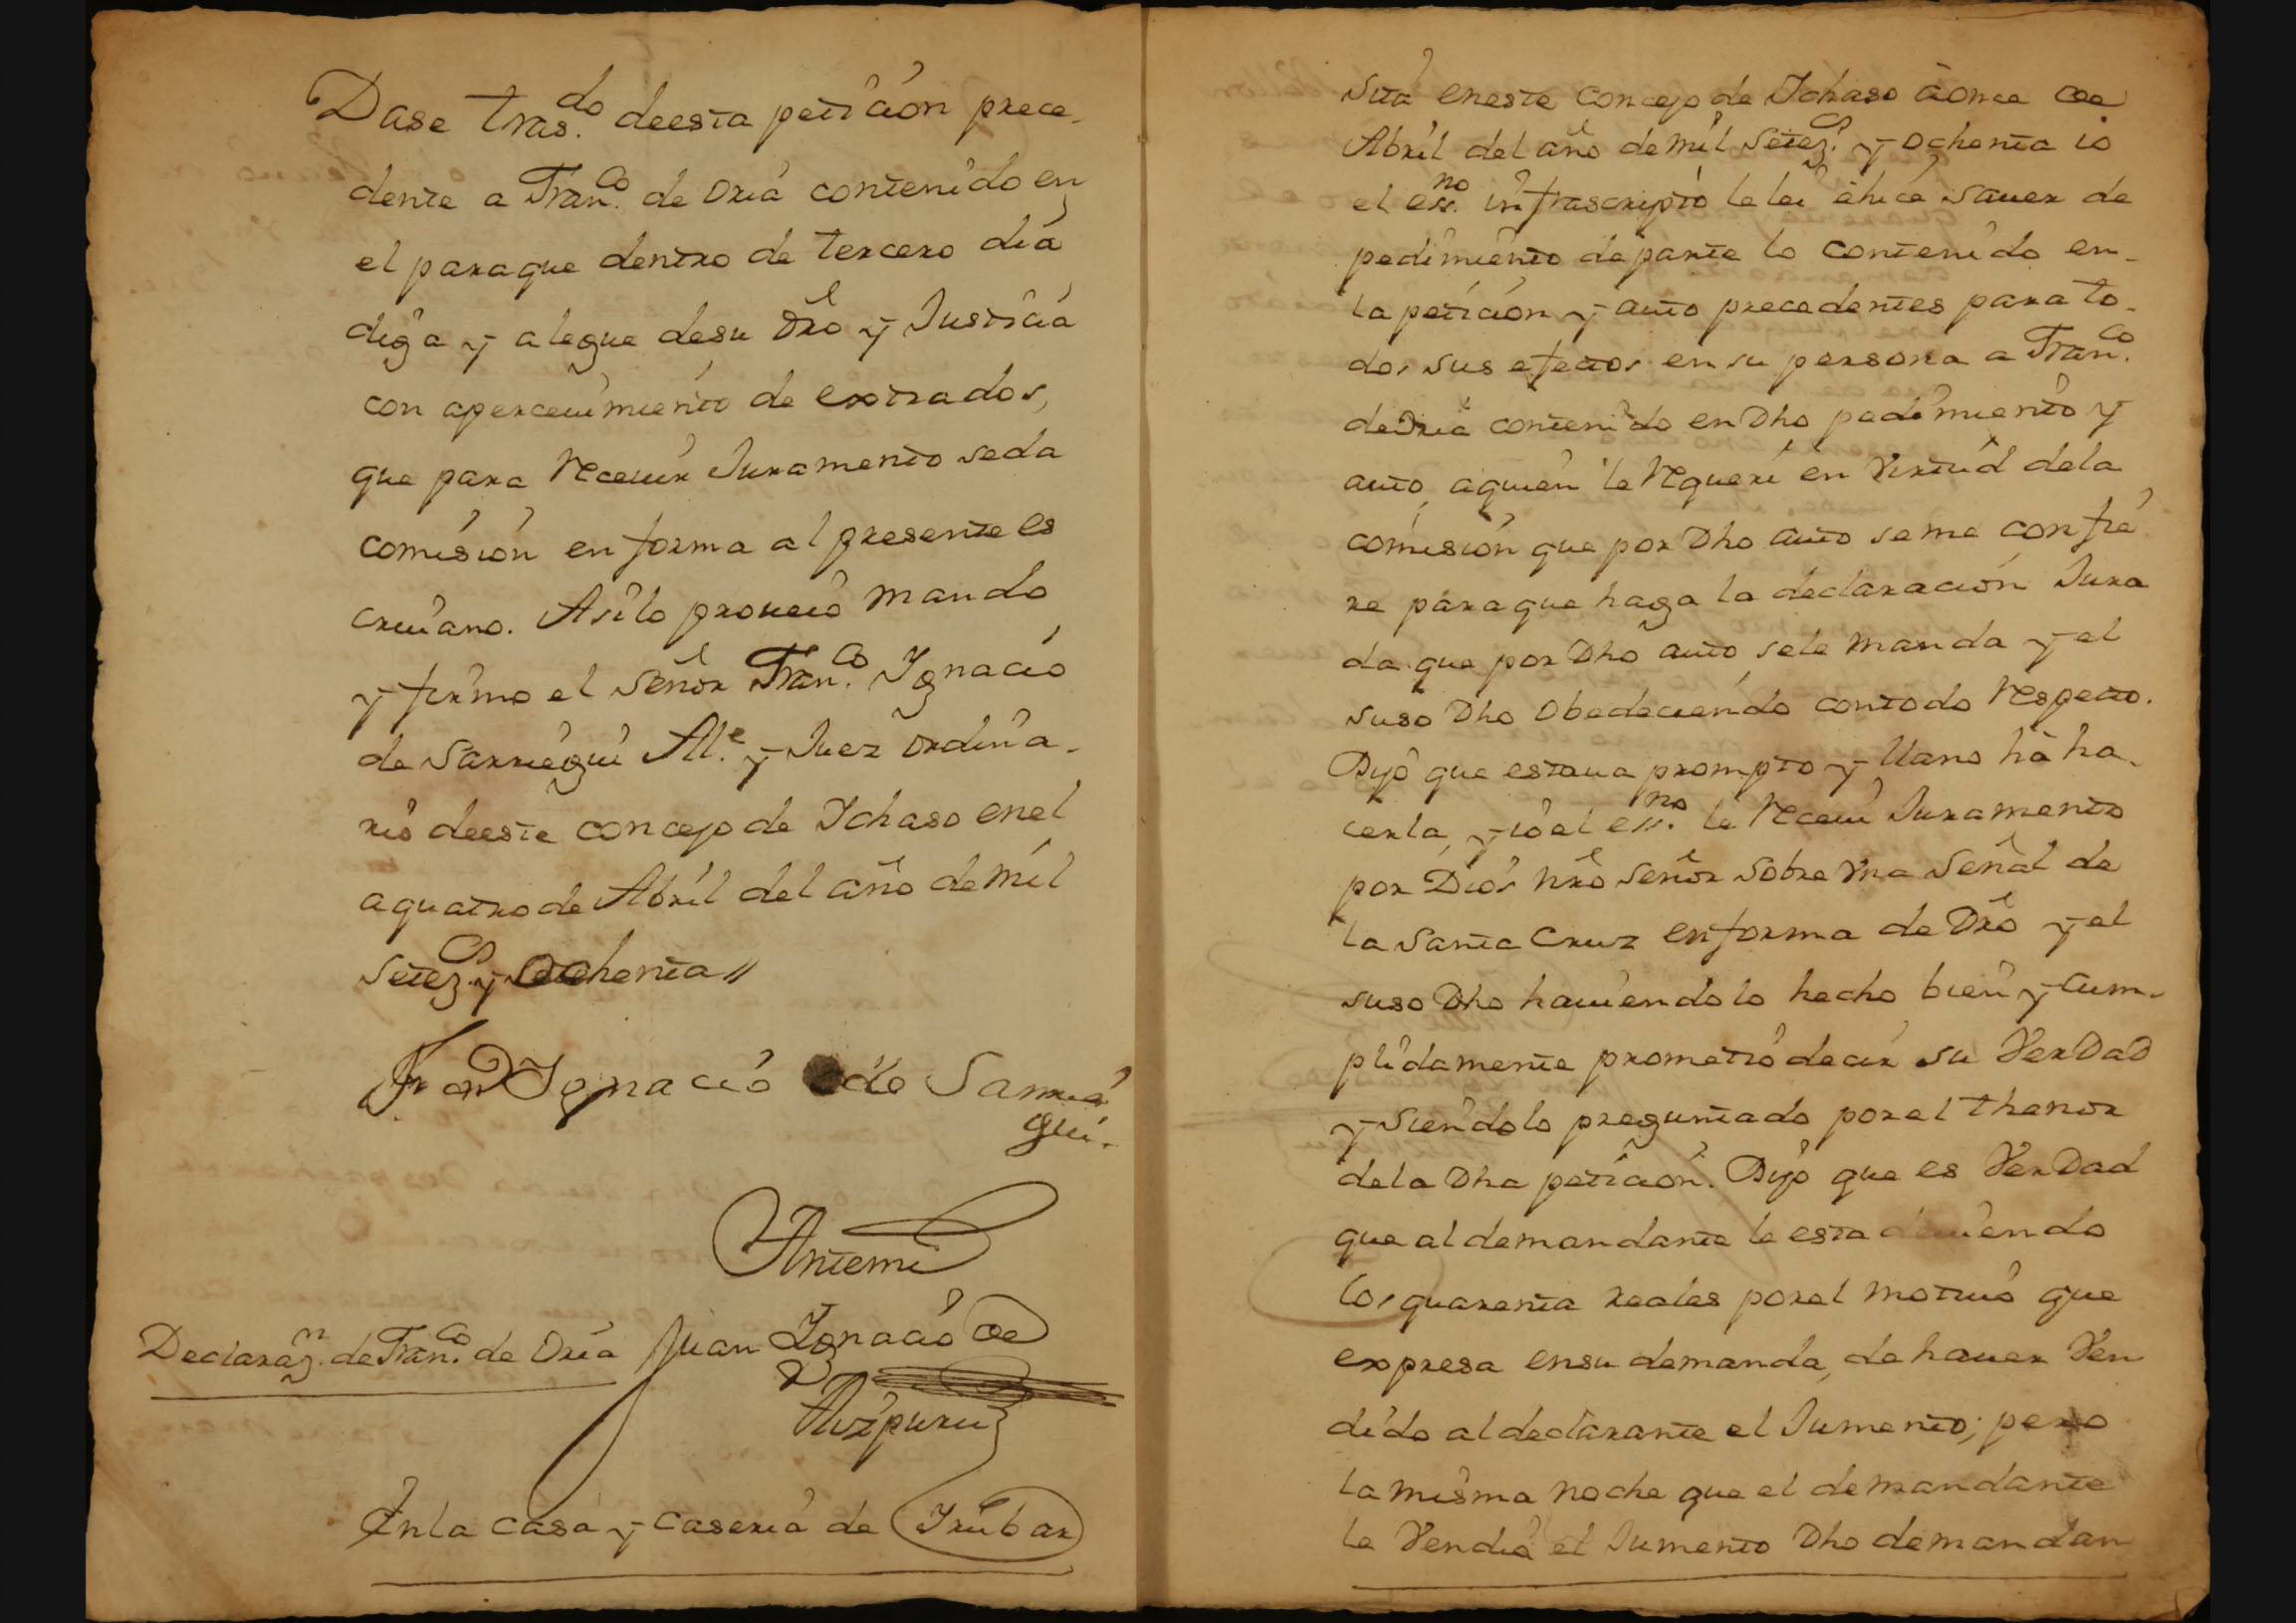 Dase tras.do deesta petición prece-
dente a Fran.co de Oria contenido en
el paraque dentro de tercero dia
diga y alegue desu dro y Justicia
con apercevimiento de extrados,
que para Recevir Juramento seda
comisión en forma al presente es
crivano. Asilo proveió mando
y firmo el señor Fran.co Ignacio
de Sarriegui Al.e y Juez ordina-
rio deeste concejo de Ichaso enel
aquatro de Abril del año de mil
Setez.s y ochenta //
Fran Ignacio de Sarrie
gui.
Antemi
Juan Ignacio de
Aizpuru
Declaraz.n de Fran.co de Oria
Enla casa y caseria de Irubar
sita eneste concejo de Ichaso àonce de
Abril del año de mil Setez.s y ochenta io
el ess.no infrascripto le lei èhice saver de
pedimiento de parte lo contenido en-
la petición y auto precedentes para to-
dos sus efectos en su persona a Fran.co
de Oria contenido en Dho pedimiento y
auto, aquien le Requeri en Virtud dela
comisión que por Dho auto seme confie
re paraque haga la declaración Jura
da que por Dho auto sele manda y el
suso Dho Obedeciendo contodo Respecto.
Dijo que estava prompto y llano hà ha-
cerla, y ioel ess.no le Recevi Juramento
por Dios nro señor sobre Vna Señal de
la Santa Cruz enforma de Dro y el
suso Dho haviendolo hecho bien y cum-
plidamente prometió decir su VerDaD
y siendolo preguntado porel thenor
dela Dha petición. Dijo que es VerDad
que aldemandante le esta deviendo
los quarenta reales porel motivo que
expresa ensu demanda, de haver Ven
dido aldeclarante el Jumento; pero
la misma noche que el demandante
le Vendió el Jumento Dho demandan